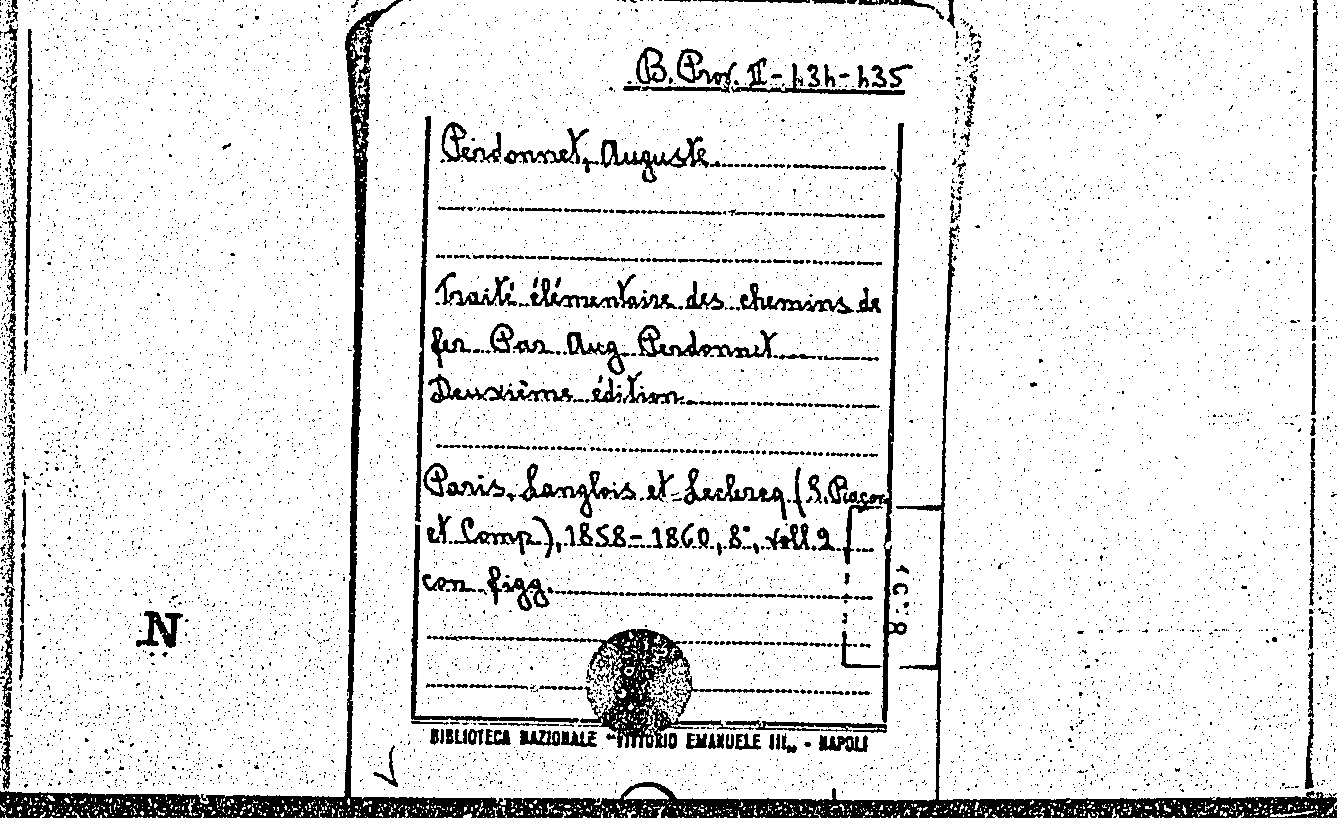 B. Prov. II - 434-435
Perdonnet, Auguste
Traité élémentaire des chemins de
fer Par Aug Perdonnet
Deuxième édition
Paris, Langlois et Leclercq (S. Raçon
et Comp), 1858-1860, 8°, voll. 2
con figg.
N
BIBLIOTECA NAZIONALE "VITTORIO EMANUELE III„ - NAPOLI